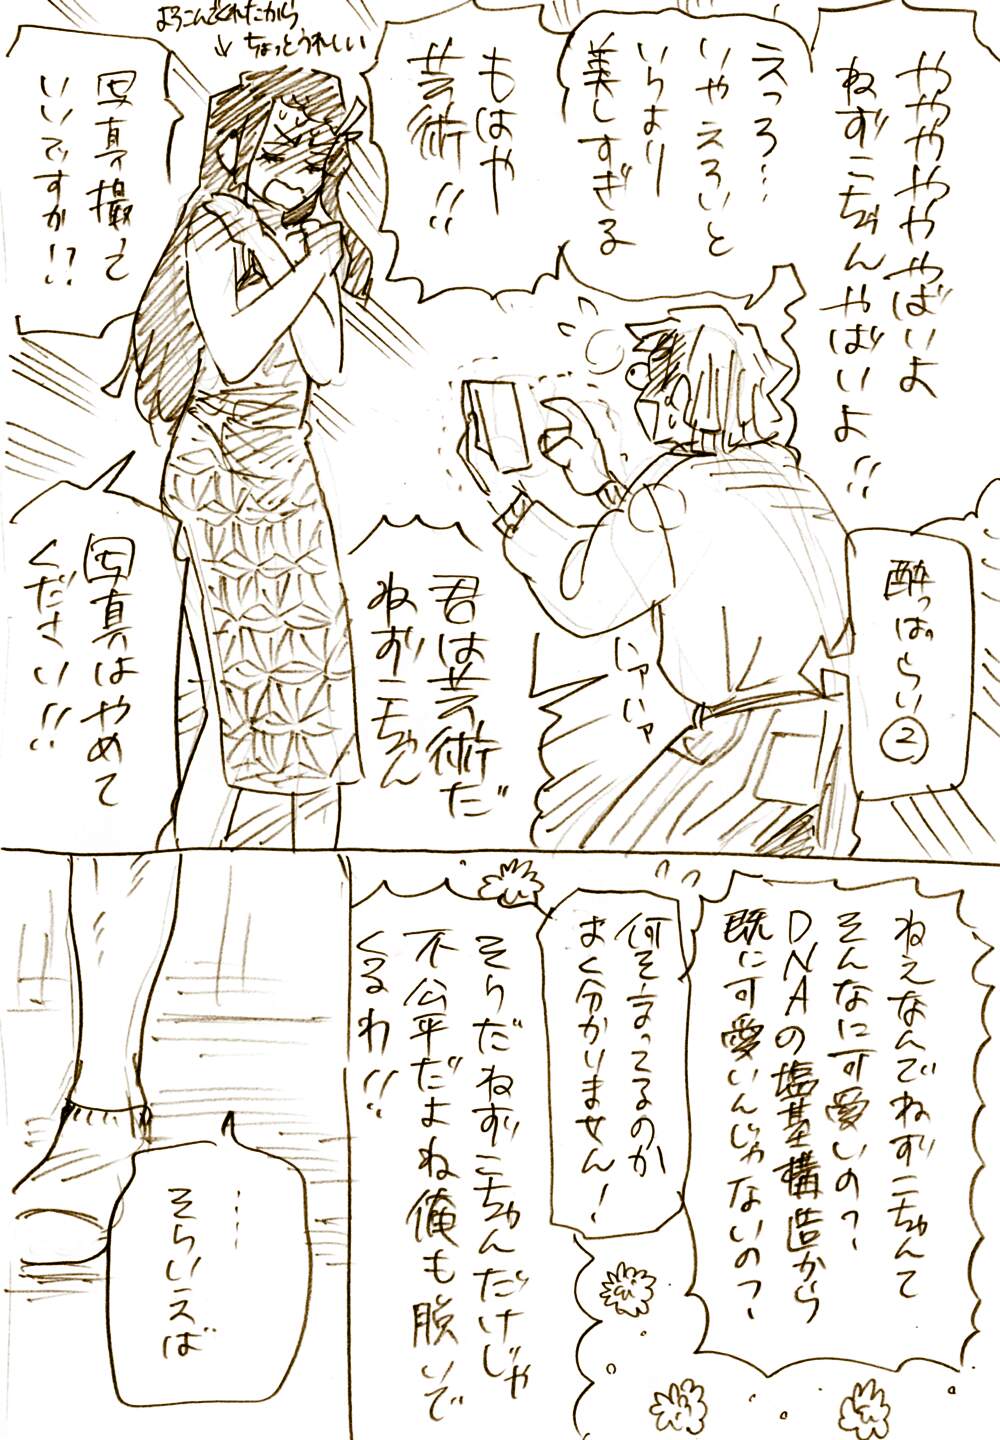 ややややややばいよ
ねずこちゃんやばいよ!!
えっろ…
いやえろいと
いうより
美しすぎる
もはや
芸術!!
よろこんでくれたから
ちょっとうれしい
写真撮って
いいですか!?
酔っぱらい②
ハァハァ
君は芸術だ
ねずこちゃん
写真はやめて
ください!!
ねえなんでねずこちゃんて
そんなに可愛いの?
DNAの塩基構造から
既に可愛いんじゃないの?
何そ言ってるのか
よく分かりません!
そうだねずこちゃんだけじゃ
不公平だよね俺も脱いで
くるわ!!
……
そういえば